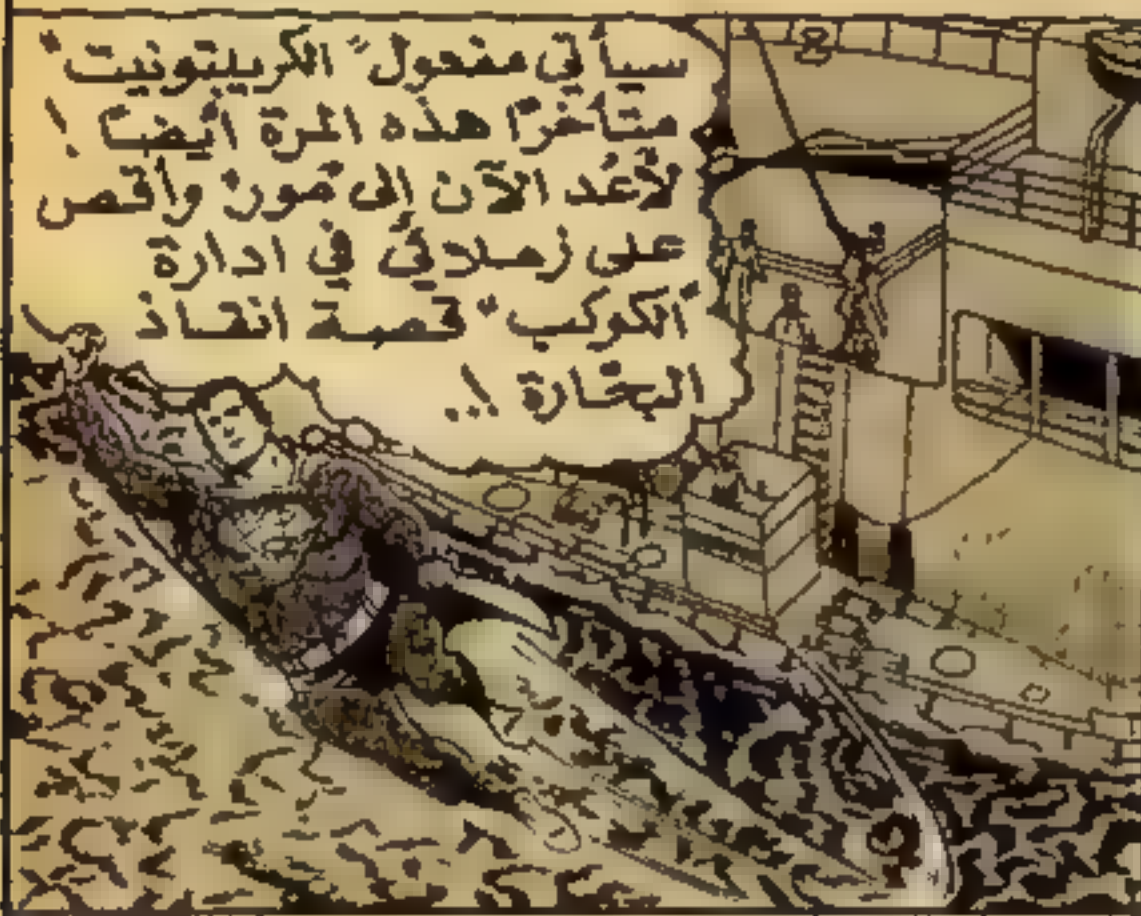 سيأتي مفعول "الكريبتونيت"
متأخرًا هذه المرة أيضًا !
لأعُد الآن إلى نمور وأقص
على زملائي في ادارة
"الكوكب" قصة انقاذ
البحّارة !..
8